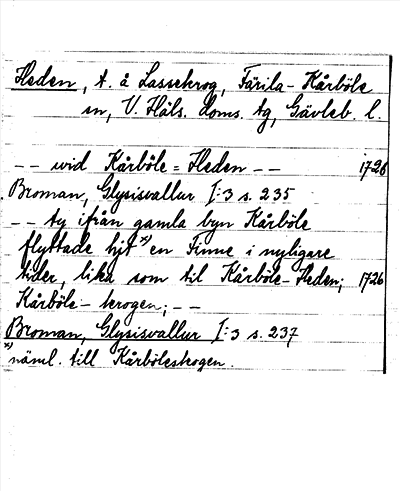 Heden, t. å Lassekrog, Färila-Kårböle
sn, V. Häls. doms. tg, Gävleb. l.
-- wid Kårböle=Heden -- 1726
Broman, Glysisvallur I:3 s. 235
-- ty ifrån gamla byn Kårböle
flyttade hit x) en Finne i nyligare
tider, lika som til Kårböle-Heden; 1726
Kårböle-krogen; --
Broman, Glysisvallur I:3 s. 237
x) näml. till Kårböleskogen.